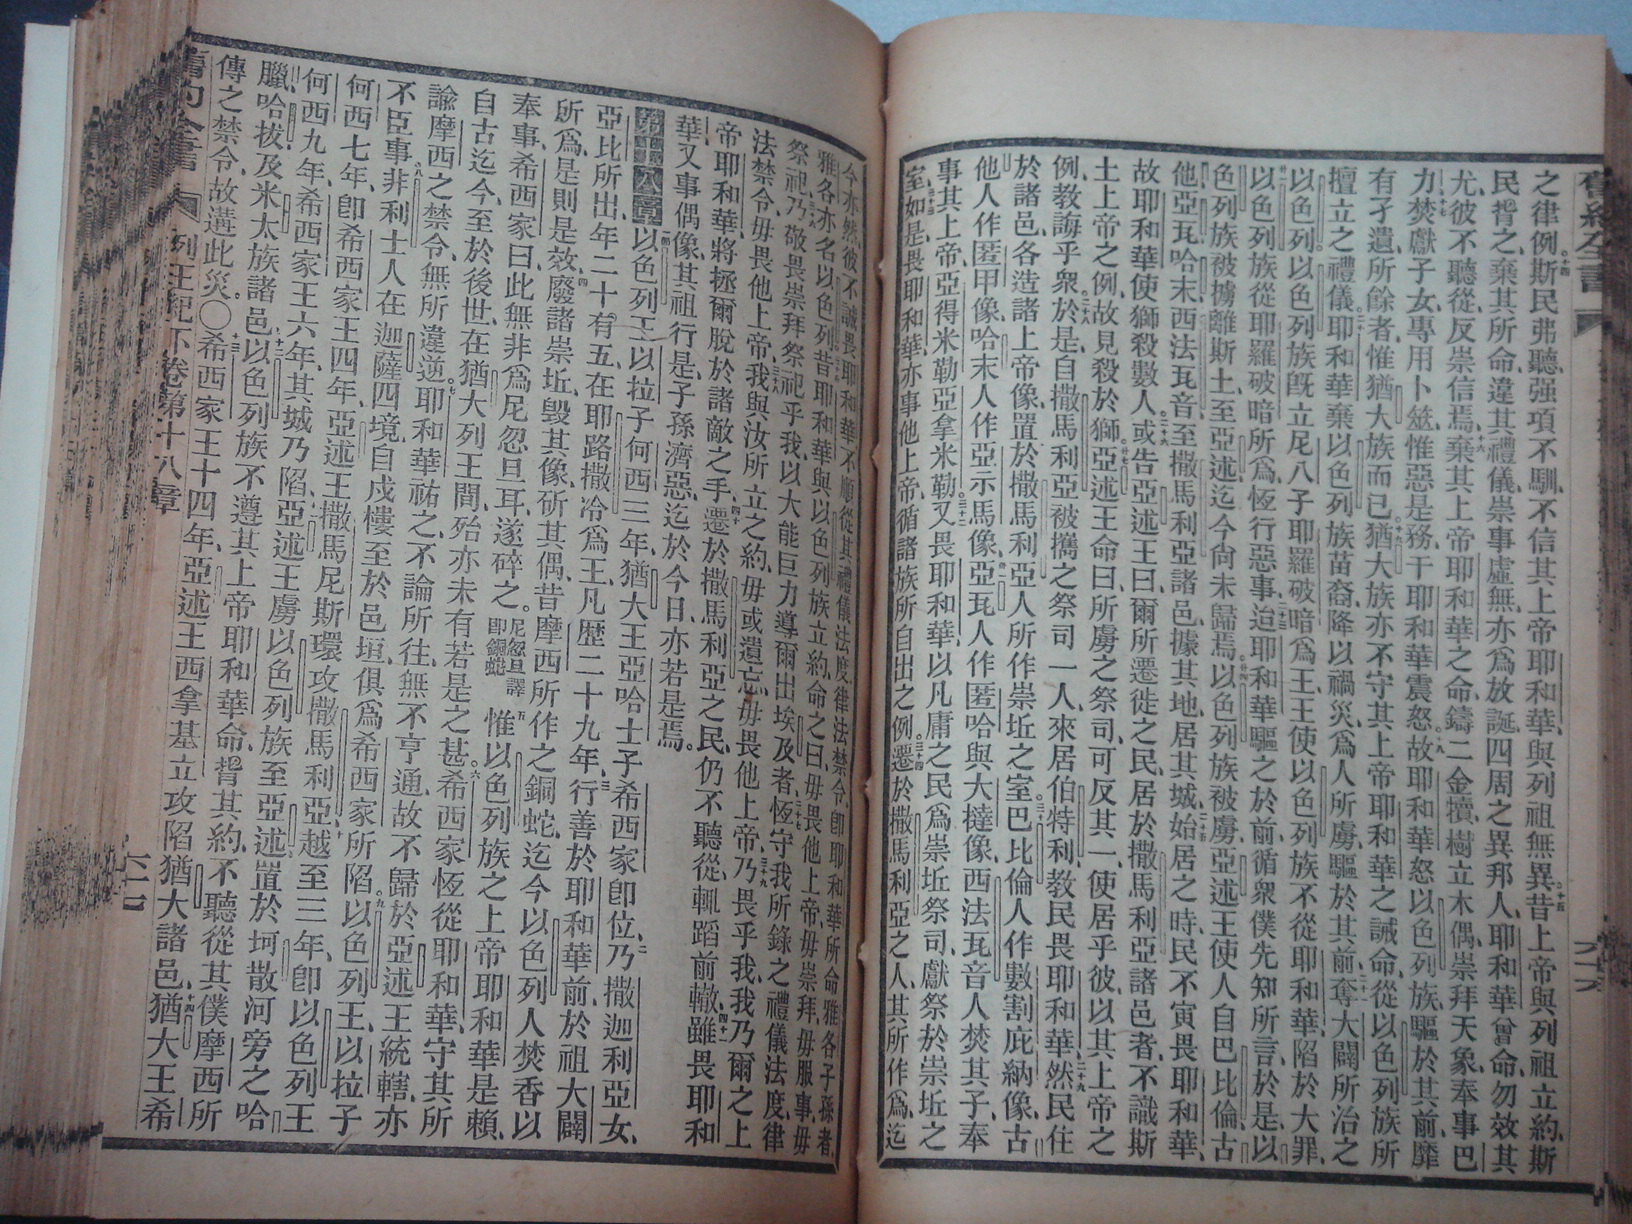 舊約全書
之律例斯民弗聽强項不馴不信其上帝耶和華與列祖無異昔上帝與列祖立約斯
民揹之棄其所命違其禮儀崇事虛無亦爲放誕四周之異邦人耶和華曾命勿效其
尤彼不聽從反崇信焉棄其上帝耶和華之命鑄二金犢樹立木偶崇拜天象奉事巴
力焚獻子女專用卜筮惟惡是務干耶和華震怒故耶和華怒以色列族驅於其前靡
有孑遺所餘者惟猶大族而已猶大族亦不守其上帝耶和華之誡命從以色列族所
擅立之禮儀耶和華棄以色列族苗裔降以禍災爲人所虜驅於其前奪大闢所治之
以色列以色列族旣立尼八子耶羅破暗爲王王使以色列族不從耶和華陷於大罪
以色列族從耶羅破暗所爲恆行惡事迨耶和華驅之於前循衆僕先知所言於是以
色列族被擄離斯土至亞述迄今尙未歸焉以色列族被虜亞述王使人自巴比倫古
他亞瓦哈末西法瓦音至撒馬利亞諸邑據其地居其城始居之時民不寅畏耶和華
故耶和華使獅殺數人或告亞述王曰爾所遷徙之民居於撒馬利亞諸邑者不識斯
土上帝之例故見殺於獅亞述王命曰所虜之祭司可反其一使居乎彼以其上帝之
例教誨乎衆於是自撒馬利亞被攜之祭司一人來居伯特利教民畏耶和華然民住
於諸邑各造諸上帝像置於撒馬利亞人所作崇坵之室巴比倫人作數割庇納像古
他人作匿甲像哈末人作亞示馬像亞瓦人作匿哈與大撻像西法瓦音人焚其子奉
事其上帝亞得米勒亞拿米勒又畏耶和華以凡庸之民爲崇坵祭司獻祭於崇坵之
室如是畏耶和華亦事他上帝循諸族所自出之例遷於撒馬利亞之人其所作爲迄
今亦然彼不誠畏耶和華不順從其禮儀法度律法禁令卽耶和華所命雅各子孫者
雅各亦名以色列昔耶和華與以色列族立約命之曰毋畏他上帝毋崇拜毋服事毋
祭祀乃敬畏崇拜祭祀乎我以大能巨力導爾出埃及者恆守我所錄之禮儀法度律
法禁令毋畏他上帝我與汝所立之約毋或遺忘毋畏他上帝乃畏乎我我乃爾之上
帝耶和華將拯爾脫於諸敵之手遷於撒馬利亞之民仍不聽從輒蹈前轍雖畏耶和
華又事偶像其祖行是子孫濟惡迄於今日亦若是焉
第十八章以色列王以拉子何西三年猶大王亞哈士子希西家卽位乃撒迦利亞女
亞比所出年二十有五在耶路撒冷爲王凡歷二十九年行善於耶和華前於祖大闢
所爲是則是效廢諸崇坵毀其像斫其偶昔摩西所作之銅蛇迄今以色列人焚香以
奉事希西家曰此無非爲尼忽旦耳遂碎之尼忽旦譯卽銅蛇惟以色列族之上帝耶和華是賴
自古迄今至於後世在猶大列王間殆亦未有若是之甚希西家恆從耶和華守其所
諭摩西之禁令無所違逆耶和華祐之不論所往無不亨通故不歸於亞述王統轄亦
不臣事非利士人在迦薩四境自戍樓至於邑垣俱爲希西家所陷以色列王以拉子
何西七年卽希西家王四年亞述王撒馬尼斯環攻撒馬利亞越至三年卽以色列王
何西九年希西家王六年其城乃陷亞述王虜以色列族至亞述置於坷散河旁之哈
臘哈拔及米太族諸邑以色列族不遵其上帝耶和華命揹其約不聽從其僕摩西所
傳之禁令故遘此災○希西家王十四年亞述王西拿基立攻陷猶大諸邑猶大王希
舊約全書 列王紀下卷第十八章